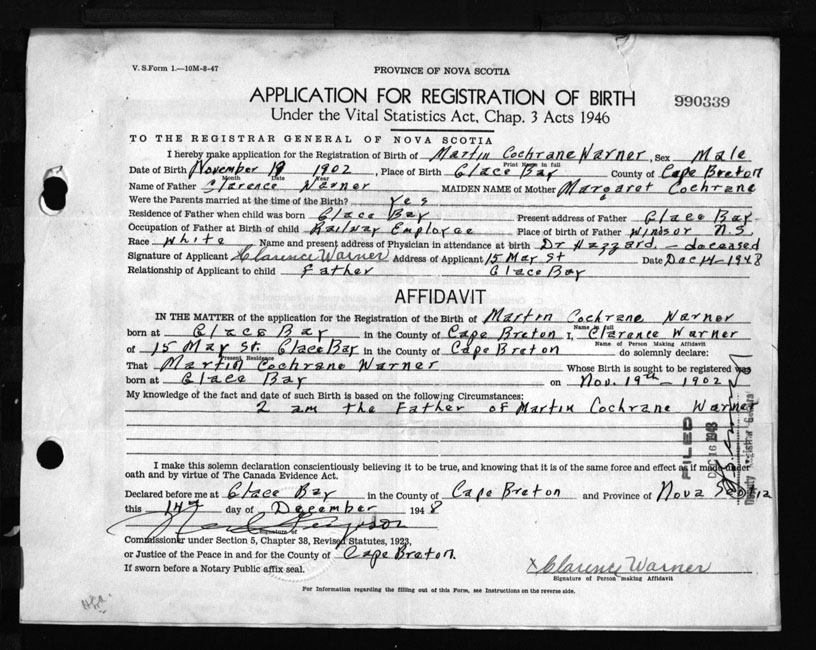 V. S. Form 1.—10M-8-47
PROVINCE OF NOVA SCOTIA
APPLICATION FOR REGISTRATION OF BIRTH
990339
Under the Vital Statistics Act, Chap. 3 Acts 1946
TO THE REGISTRAR GENERAL OF NOVA SCOTIA
I hereby make application for the Registration of Birth of Martin Cochrane Warner, Sex Male
Print Name in full
Date of Birth November 19 1902, Place of Birth Glace Bay County of Cape Breton
Month Date Year
Name of Father Clarence Warner MAIDEN NAME of Mother Margaret Cochrane
Were the Parents married at the time of the Birth? yes
Residence of Father when child was born Glace Bay Present address of Father Glace Bay
Occupation of Father at Birth of child Railway Employee Place of birth of Father Windsor N.S.
Race White Name and present address of Physician in attendance at birth Dr Hazzard - deceased
Signature of Applicant Clarence Warner Address of Applicant 15 May St Date Dec 14 - 1948
Relationship of Applicant to child Father Glace Bay
AFFIDAVIT
IN THE MATTER of the application for the Registration of the Birth of Martin Cochrane Warner
Name in full
born at Glace Bay in the County of Cape Breton I, Clarence Warner
Name of Person Making Affidavit
of 15 May St. Glace Bay in the County of Cape Breton do solemnly declare:
Present Residence
That Martin Cochrane Warner Whose Birth is sought to be registered was
born at Glace Bay on Nov. 19th - 1902
My knowledge of the fact and date of such Birth is based on the following Circumstances:
I am the Father of Martin Cochrane Warner
FILED
DEC 16 1948
Deputy Registrar General
I make this solemn declaration conscientiously believing it to be true, and knowing that it is of the same force and effect as if made under
oath and by virtue of The Canada Evidence Act.
Declared before me at Glace Bay in the County of Cape Breton and Province of Nova Scotia
this 14th day of December 1948
Signature of
Commissioner under Section 5, Chapter 38, Revised Statutes, 1923,
or Justice of the Peace in and for the County of Cape Breton.
If sworn before a Notary Public affix seal.
x Clarence Warner
Signature of Person making Affidavit
For Information regarding the filling out of this Form, see Instructions on the reverse side.